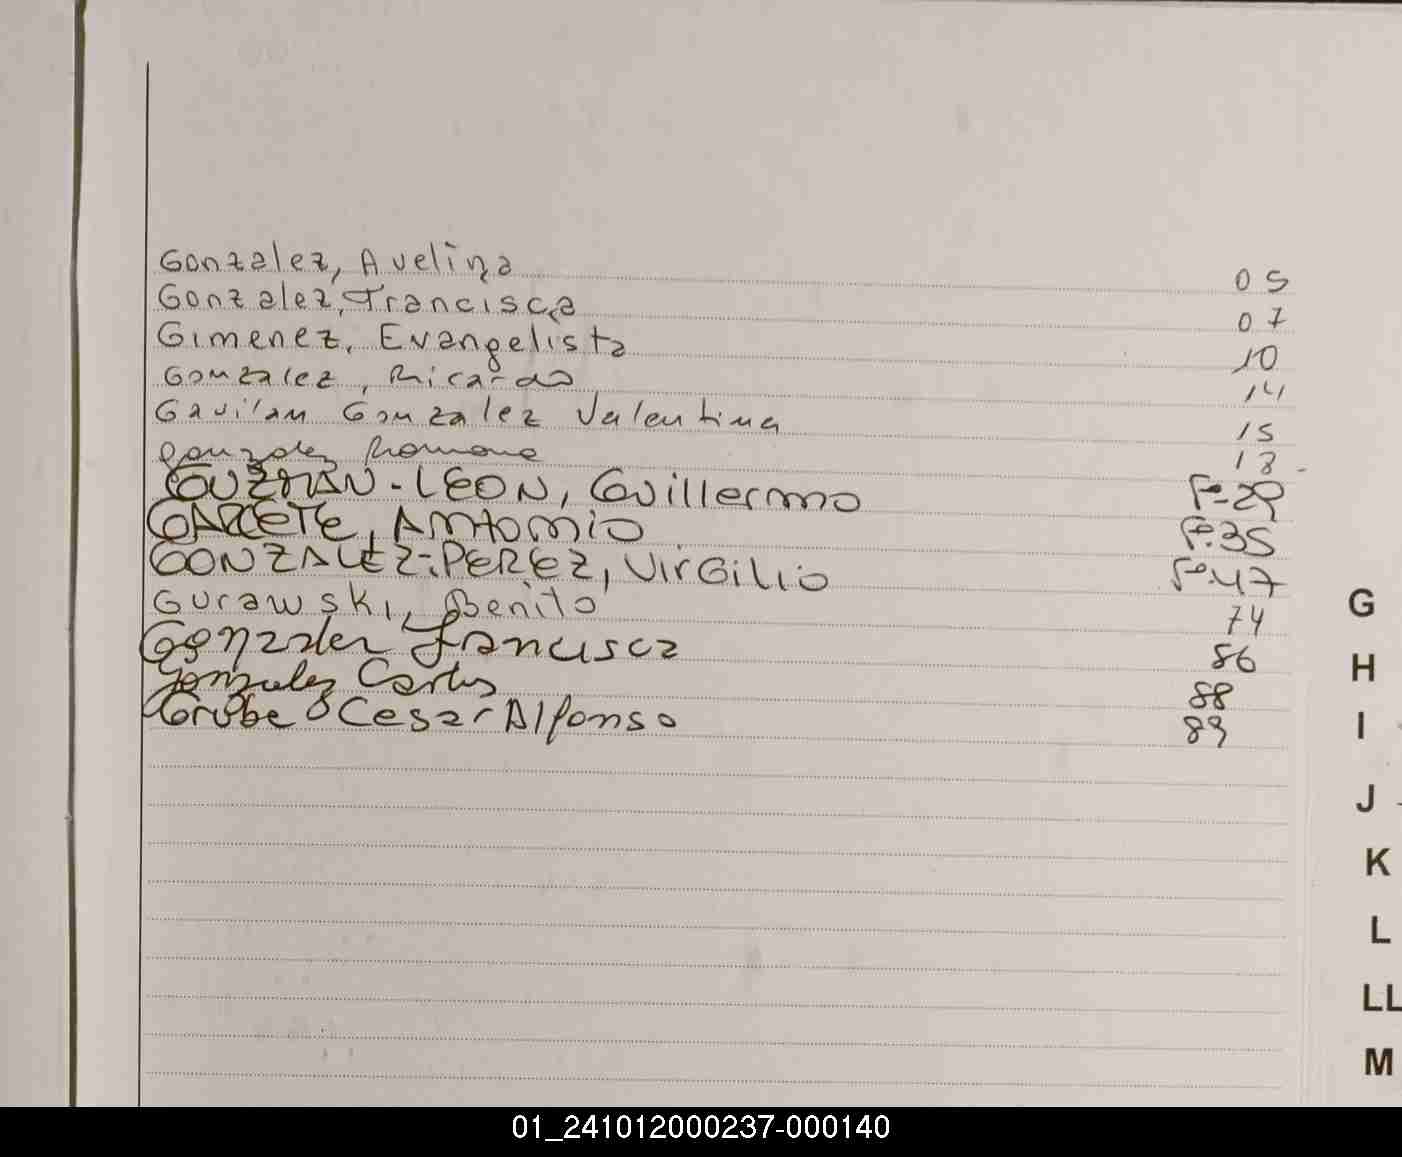 Gonzalez, Avelina 05
Gonzalez, Francisca 07
Gimenez, Evangelista 10
Gonzalez, Ricardo 14
Gavilan Gonzalez Valentina 15
Gonzalez Romona 18
GUZMAN-LEON, Guillermo Fº-29
GARCETE, Antonio Fº.35
GONZALEZ-PEREZ, VirGiLio Fº.47
Gurawski, Benito 74
Gonzalez Francisca 86
Gonzalez Carlos 88
Grube Cesar Alfonso 89
G
H
I
J
K
L
LL
M
01_241012000237-000140